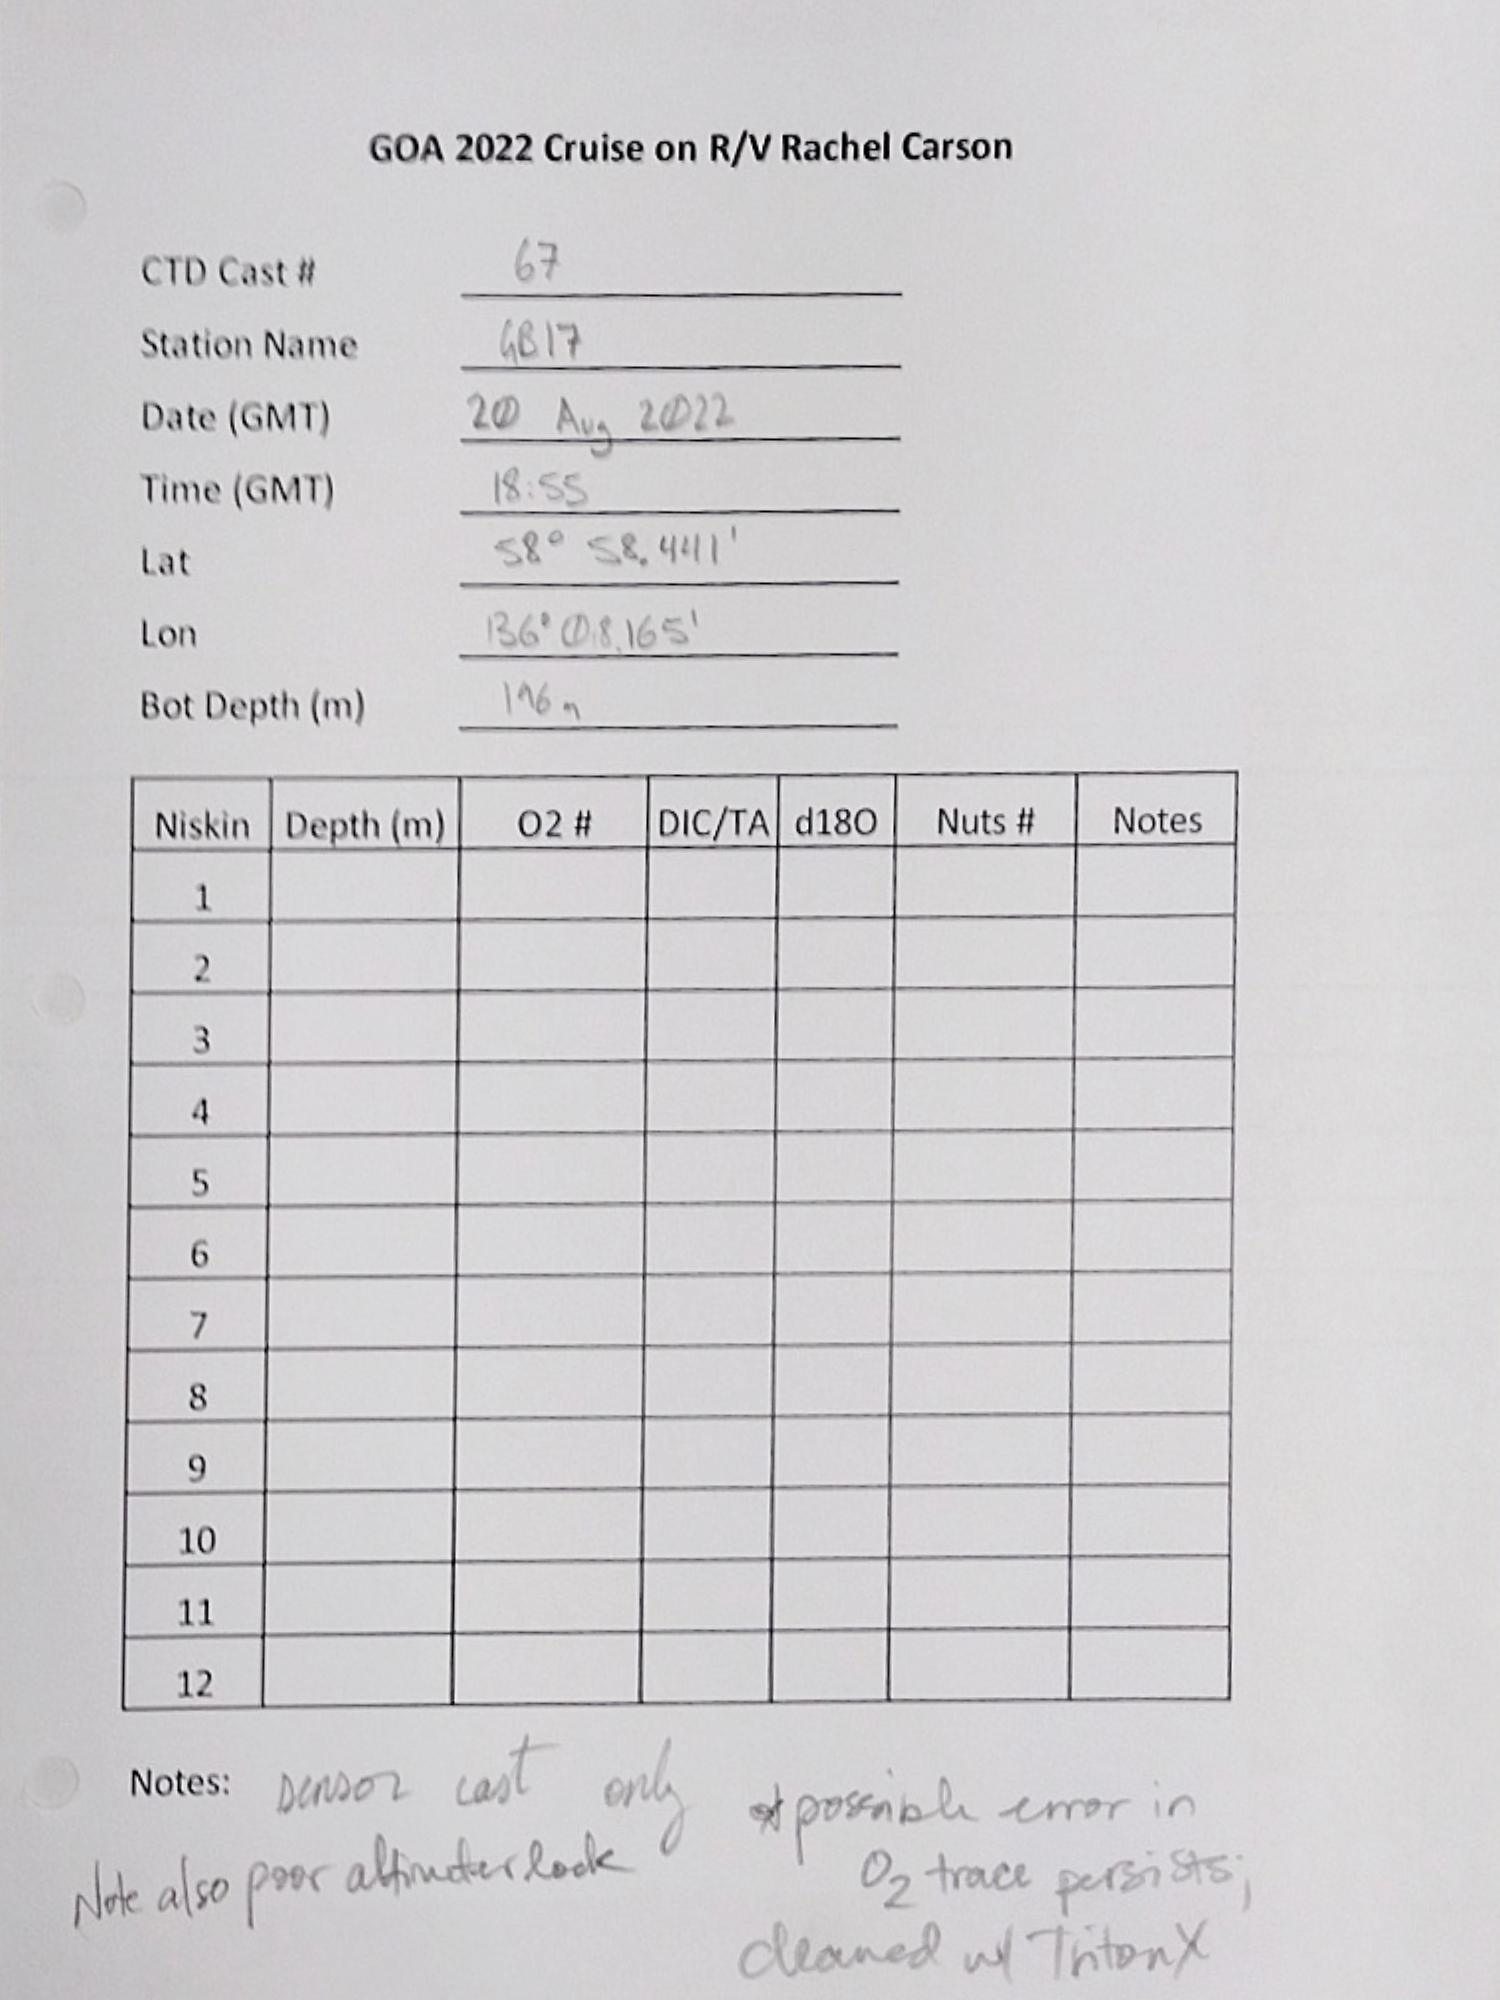 GOA 2022 Cruise on R/V Rachel Carson
CTD Cast # 67
Station Name GB17
Date (GMT) 20 Aug 2022
Time (GMT) 18:55
Lat 58° 58.441'
Lon 136° 08.165'
Bot Depth (m)
Niskin Depth (m) O2 # DIC/TA d18O Nuts # Notes
1
2
3
4
5
6
7
8
9
10
11
12
Notes: sensor cast only
Note also poor altimeter lock
* possible error in
O2 trace persists;
cleaned w/ TritonX